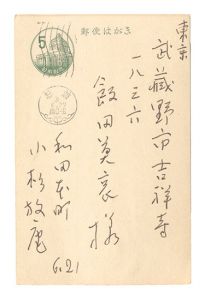 郵便はがき
5
東京
武蔵野市吉祥寺
一八三六
飯田莫哀様
和田本町
小杉放庵
6.21